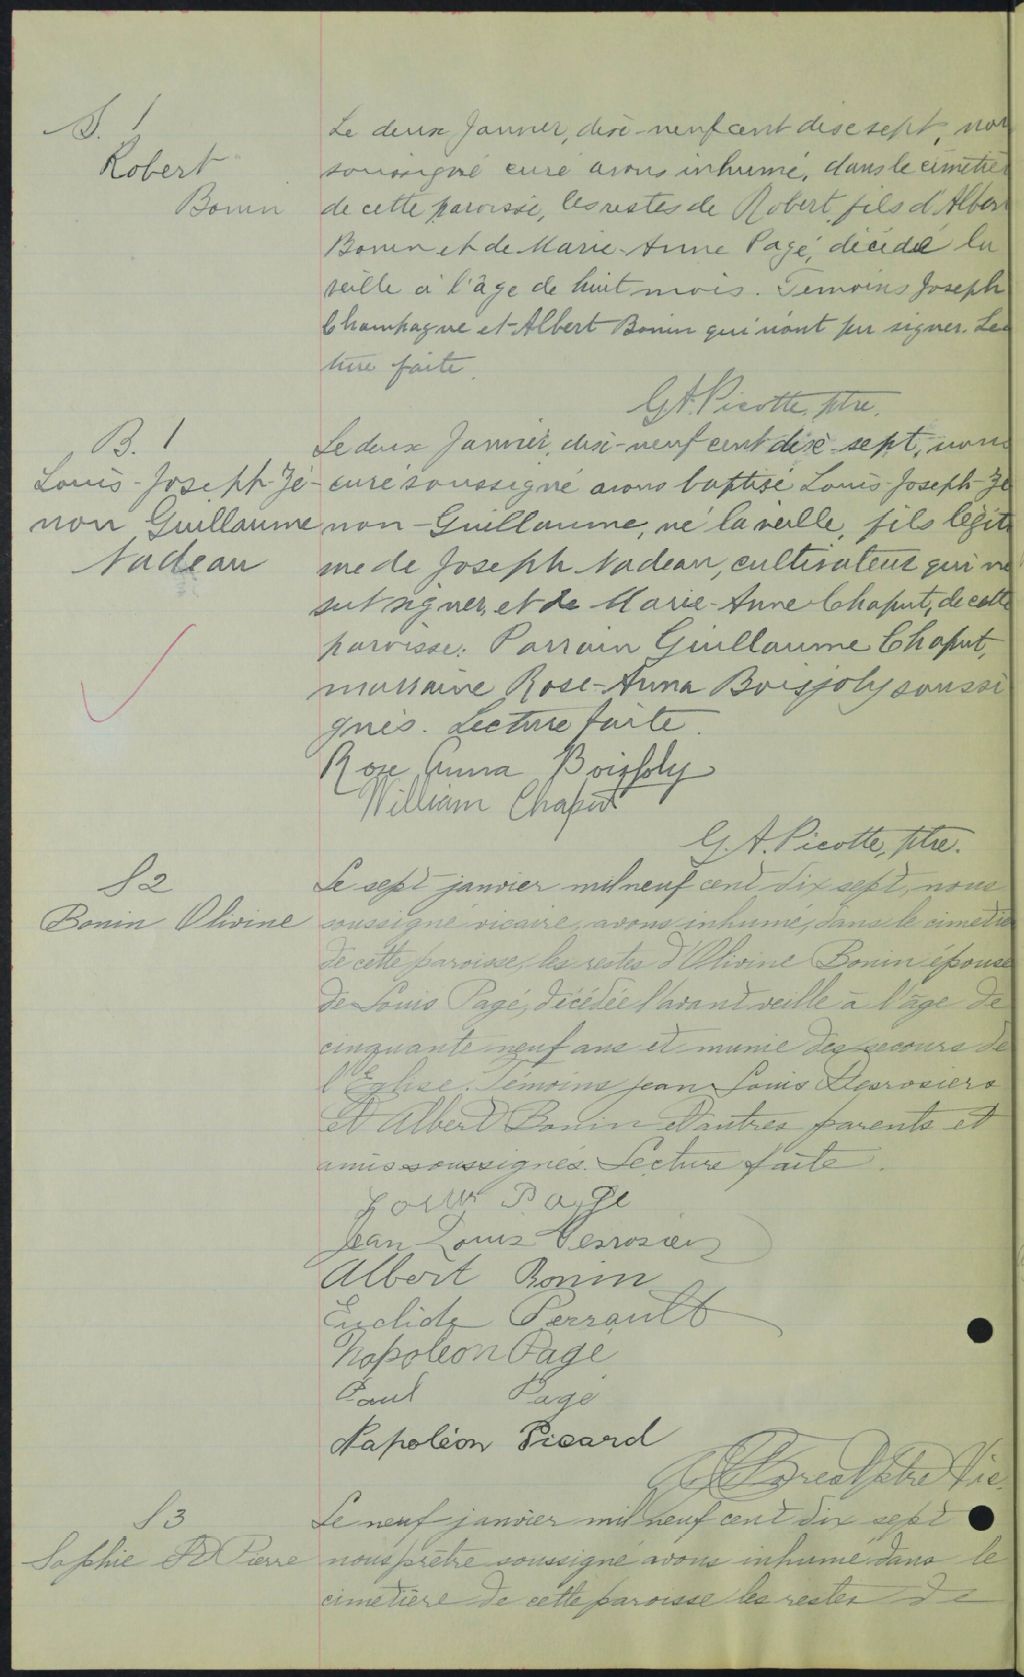 S. 1
Robert
Bonin
Le deux Janvier, dix-neuf cent dix sept, nou
soussigné curé avons inhumé, dans le cimetièr
de cette paroisse, les restes de Robert, fils d'Alber
Bonin et de Marie-Anne Pagé, décédé la
veille à l'âge de huit mois. Témoins Joseph
Champagne et Albert Bonin qui n'ont pu signer. Lec
ture faite.
G.A. Picotte, ptre.
B. 1
Louis-Joseph-Zé-
non Guillaume
Nadeau
Le deux Janvier, dix-neuf cent dix-sept, nous
curé soussigné avons baptisé Louis-Joseph-Zé
non-Guillaume, né la veille, fils légiti
me de Joseph Nadeau, cultivateur qui ne
sut signer, et de Marie-Anne Chaput, de cette
paroisse. Parrain Guillaume Chaput,
marraine Rose-Anna Boisjoly soussi
gnés. Lecture faite.
Rose Anna Boisjoly
William Chaput
G. A. Picotte, ptre.
S2
Bonin Olivine
Le sept janvier mil neuf cent dix sept, nous
soussigné vicaire, avons inhumé, dans le cimetièr
de cette paroisse, les restes d'Olivine Bonin épouse
de Louis Pagé, décédée l'avant veille à l'âge de
cinquante neuf ans et munie des secours de
l'Eglise. Témoins Jean Louis Desrosiers
et Albert Bonin et autres parents et
amis soussignés. Lecture faite.
Louis Pagé
Jean Louis Desrosiers
Albert Bonin
Euclide Perrault
Napoleon Pagé
Paul Pagé
Napoléon Picard
ptre Vic.
S3
Sophie St Pierre
Le neuf janvier mil neuf cent dix sept
nous prêtre soussigné avons inhumé dans le
cimetière de cette paroisse les restes de